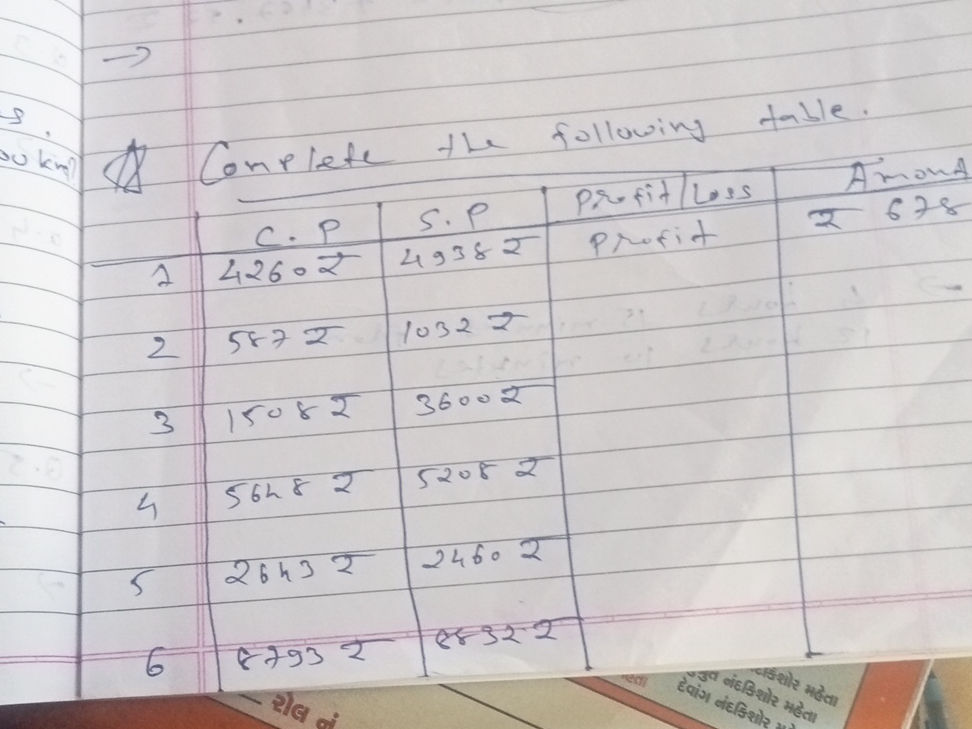 →
s.
00 km
Complete the following table.
C.P S.P Profit/Loss Amond
1 4260 ₹ 4938 ₹ Profit ₹ 678
2 587 ₹ 1032 ₹
3 1508 ₹ 3600 ₹
4 5648 ₹ 5208 ₹
5 2643 ₹ 2460 ₹
6 8793 ₹ 8832 ₹
રોલ નં
નંદકિશોર મહેતા
દેવાંગ નંદકિશોર મહેતા